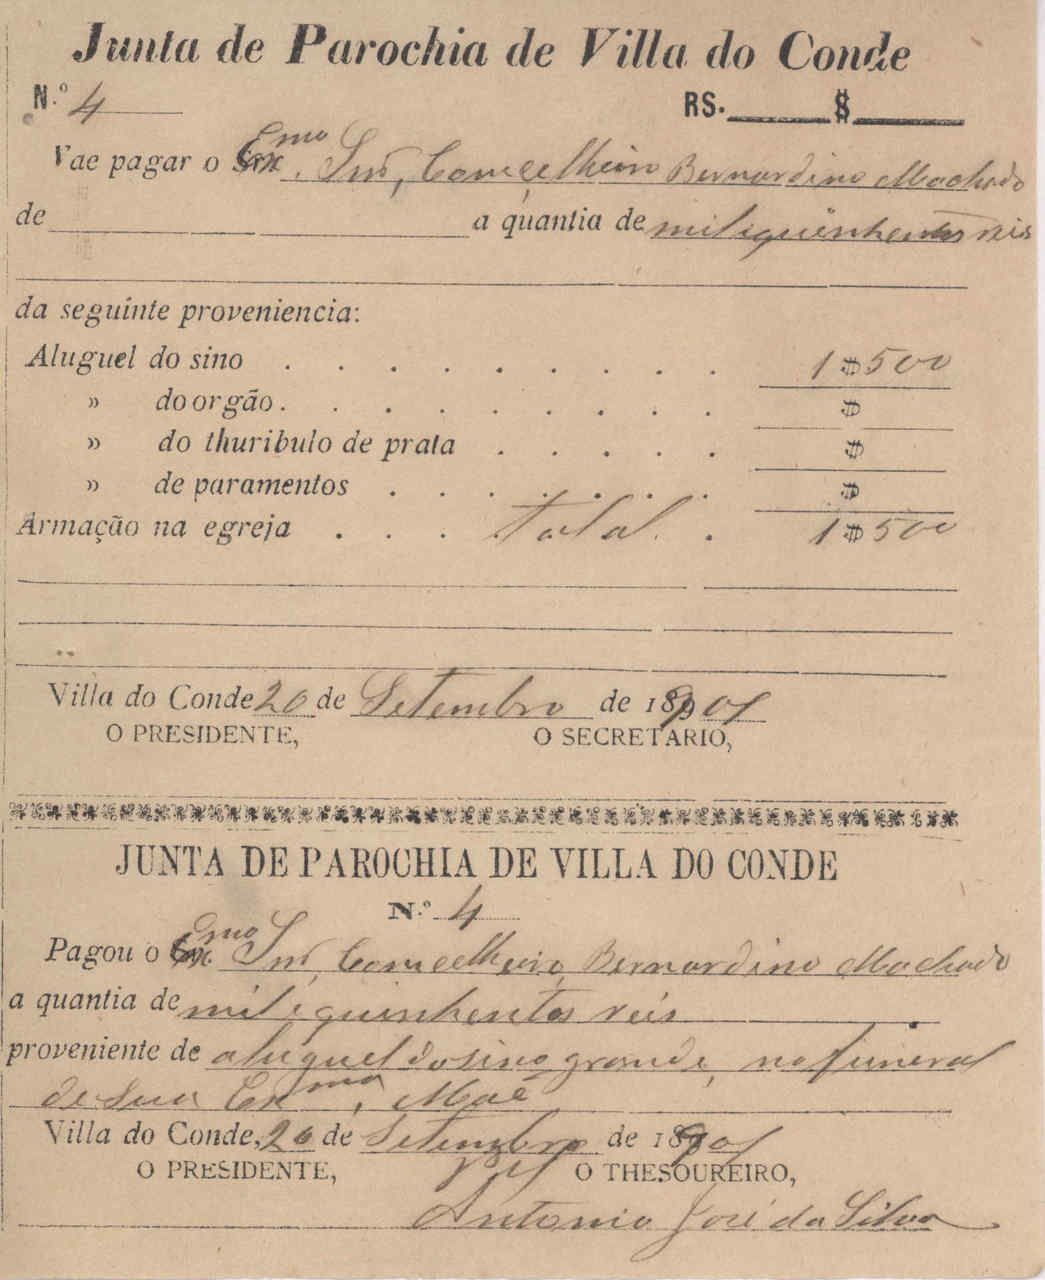 Junta de Parochia de Villa do Conde
N.º 4 RS. $
Vae pagar o Exmo. Snr, Comcelheiro Bernardino Machado
de a quantia de mil e quinhentos reis
da seguinte proveniencia:
Aluguel do sino . . . . . . . . . 1$500
» do orgão . . . . . . . . . $
» do thuribulo de prata . . . . . $
» de paramentos . . . . . . . $
Armação na egreja . . . total . 1$500
Villa do Conde 20 de Setembro de 1901
O PRESIDENTE, O SECRETARIO,
JUNTA DE PAROCHIA DE VILLA DO CONDE
N.º 4
Pagou o Exmo Snr Comcelheiro Bernardino Machado
a quantia de mil e quinhentos reis
proveniente de aluguel do sino grande, no funeral
de sua Exma, Maê
Villa do Conde, 20 de Setembro de 1901
O PRESIDENTE, O THESOUREIRO,
Antonio José da Silva